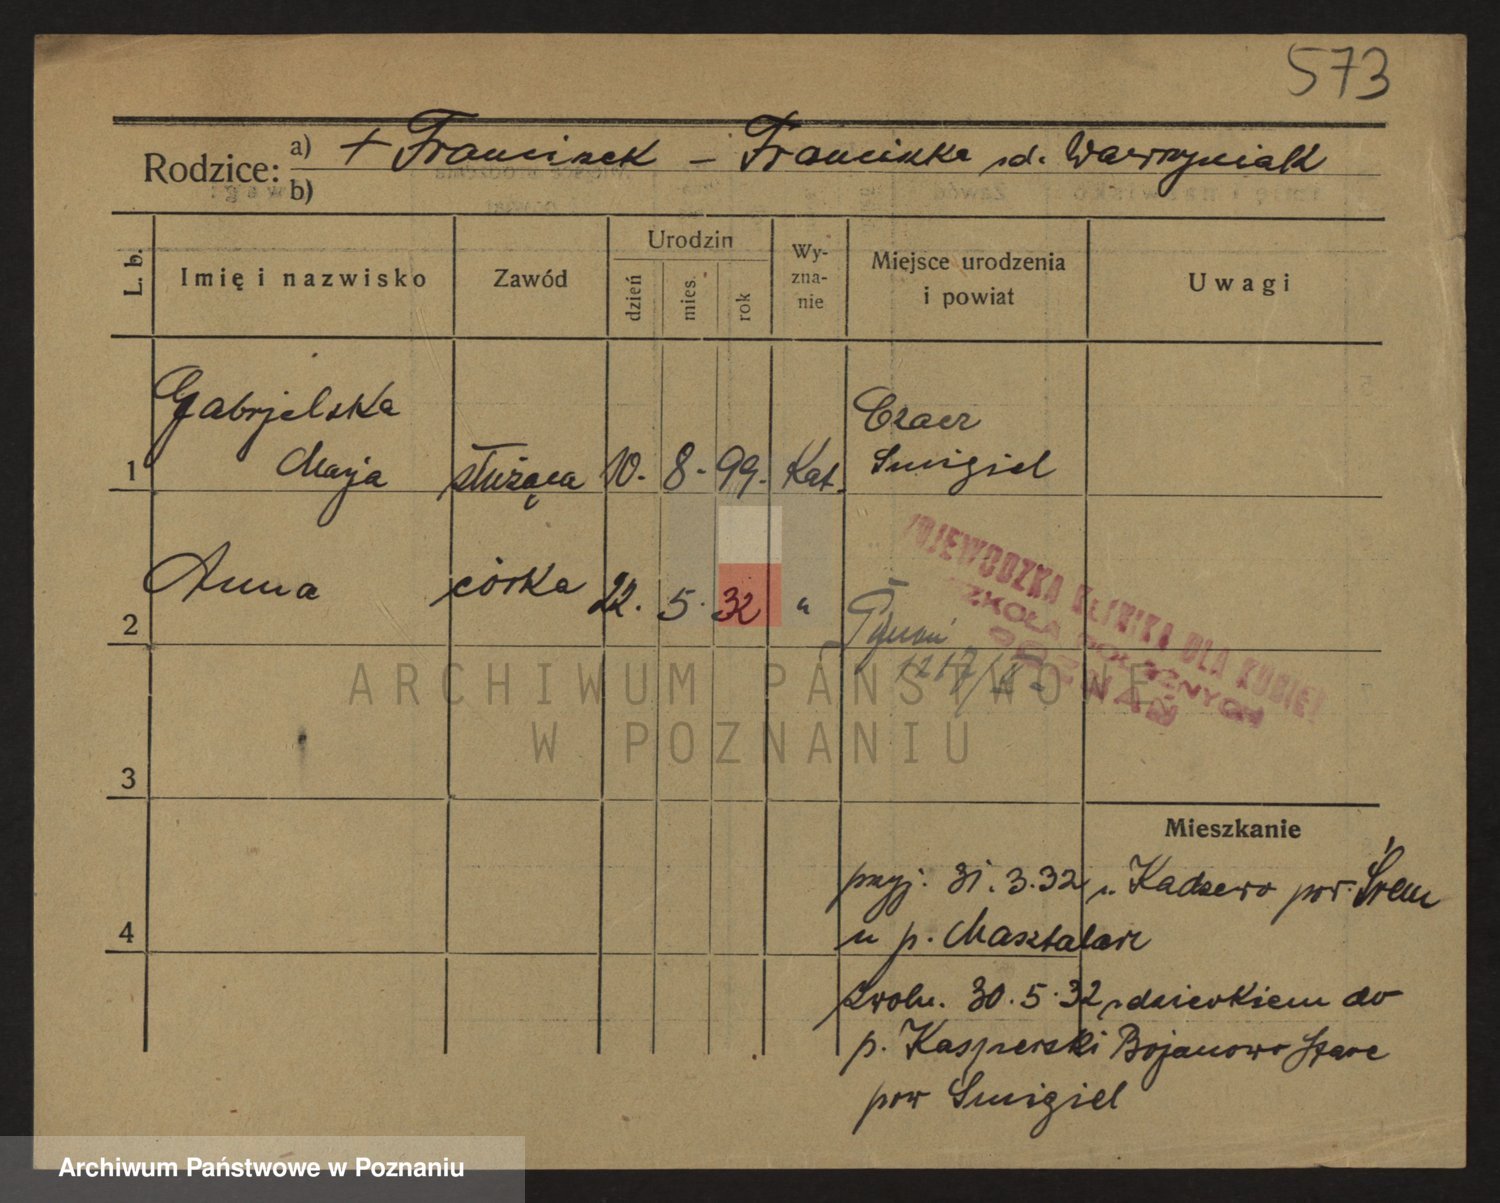 573
Rodzice: a) + Franciszek – Franciszka zd. Wawrzyniak
b)
L. b.
Imię i nazwisko
Zawód
Urodzin
dzień
mies.
rok
Wy-
zna-
nie
Miejsce urodzenia
i powiat
Uwagi
Gabrjelska
1 Marja służąca 10. 8. 99. Kat.
Czacz
Smigiel
2 Anna córka 22. 5. 32 "
WOJEWÓDZKA KLINIKA DLA KOBIET
SZKOŁA POŁOŻNYCH
POZNAŃ
3
4
Mieszkanie
przyj. 31.3.32 z Kadzewo pow. Śrem
u p. Masztalarz
zwoln. 30.5.32 z dzieckiem do
p. Kasperski Bojanowo Stare
pow Smigiel
ARCHIWUM PAŃSTWOWE
W POZNANIU
Archiwum Państwowe w Poznaniu